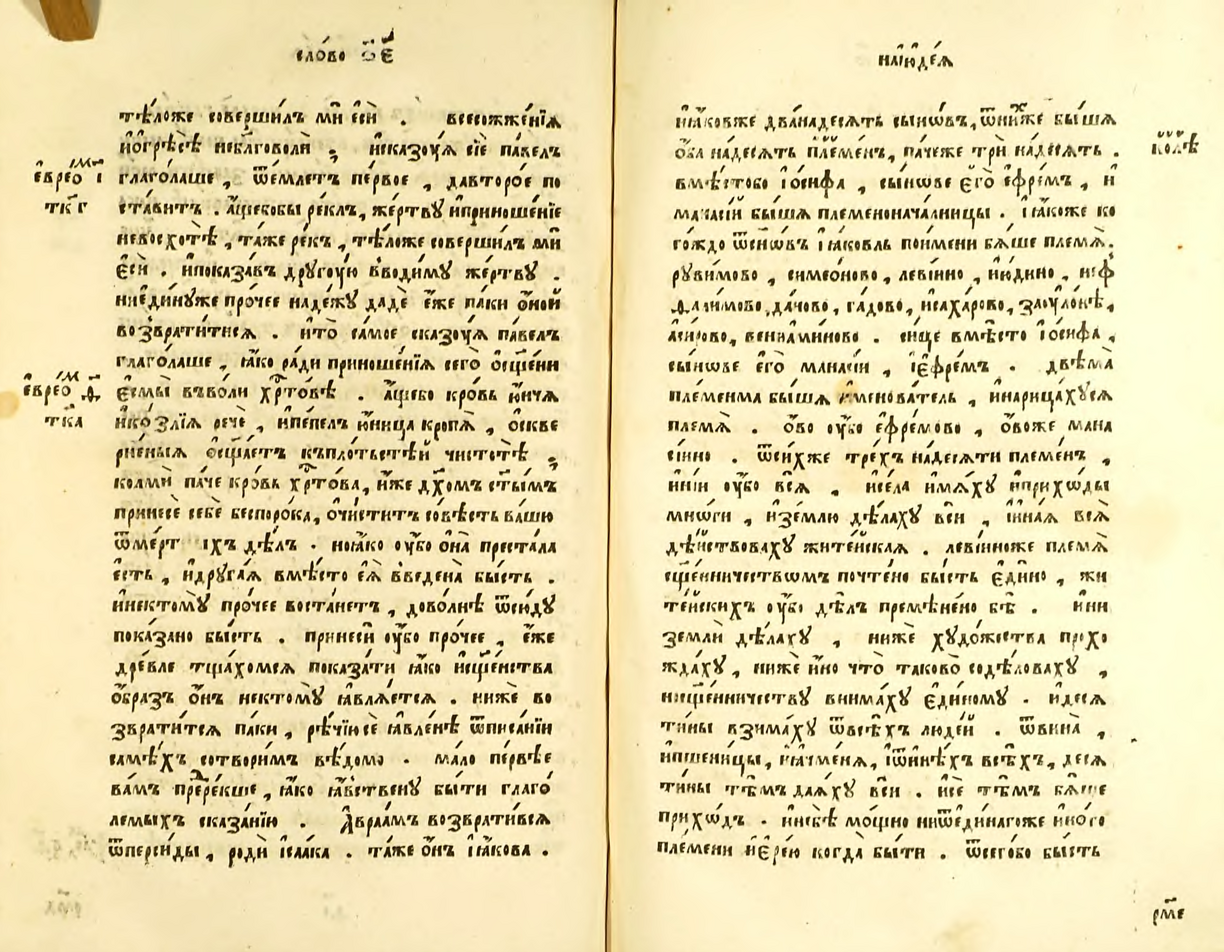 сло́во ѿ є҃
тѣ́ложе соверши́лъ ми́ єсѝ . всесожже́нїѧ
и҆ѡгрѣсѣ̀ неблⷢ҇оволѝ ; и҆сказꙋ́ѧ сїѐ па́велъ
є҆вре́ѡ м҃
і
глаго́лаше , ѿе́млетъ пе́рвое , давторо́е по
тк҃г
ста́витъ . а҆́щебобы ре́клъ , же́ртвꙋ и҆приноше́нїе
невосхотѣ̀ , та́же ре́къ , тѣ́ложе соверши́лъ мѝ
є҆сѝ . и҆показа́въ дрꙋгꙋ́ю вводи́мꙋ же́ртвꙋ .
ниеди́нꙋже про́чее наде́жꙋ дадѐ є҆́же па́ки ѻ҆но́й
возврати́тисѧ . и҆то̀ са́мое сказꙋ́ѧ па́велъ
глаго́лаше , ꙗ҆́ко ра́ди приноше́нїѧ сегѡ̀ ѡ҆сщ҃е́ни
є҆вре́ѡ м҃
є҆смы̀ въво́ли хрⷭ҇то́вѣ . а҆́щебо кро́вь ю҆́нчѧ
тк҃а
и҆ко́злїѧ речѐ , и҆пе́пелъ ю҆́ница кропѧ̀ , ѡ҆скве
рне́ныѧ ѡ҆сщ҃а́етъ къпло́тьстѣй чистотѣ̀ ;
кольмѝ па́че кро́вь хрⷭ҇то́ва , и҆́же дх҃омъ ст҃ы́мъ
принесѐ себѐ беспоро́ка , ѡ҆чи́ститъ со́вѣсть ва́шю
ѿме́рт ıхъ дѣ́лъ . ноꙗ҆́ко ᲂу҆̀бо ѻ҆на̀ преста́ла
є҆́сть , и҆дрꙋга́ѧ вмѣ́сто є҆ѧ̀ введена̀ бы́сть .
и҆нектомꙋ̀ про́чее воста́нетъ , дово́лнѣ ѿсю́дꙋ
пока́зано бы́сть . принесѝ ᲂу҆̀бо про́чее , є҆́же
дре́вле тща́хомсѧ показа́ти ꙗ҆́ко и҆сщ҃е́нства
ѻ҆́бразъ ѻ҆́нъ нектомꙋ̀ ꙗ҆влѧ́етсѧ . нижѐ во
зврати́тсѧ па́ки , рѣ́чїюсѐ ꙗ҆вле́нѣ ѿписа́нїи
самѣ́хъ сотвори́мъ вѣ́домо . ма́ло пе́рвѣе
ва́мъ пререкше , ꙗ҆́ко ꙗ҆́вственꙋ бы́ти глаго́
лемыхъ сказа́нїю . А҆враа́мъ возврати́всѧ
ѿперси́ды , родѝ і҆саа́ка . та́же ѻ҆́нъ і҆ꙗ҆́кова .
наі҆ю҆де́ѧ
и҆і҆ꙗ́ковже двана́десѧть сынѡ́въ , ѿни́хже бы́шѧ
ѻ҆́ба на́десѧть пле́менъ , па́чеже трѝ на́десѧть .
вмѣ́стобо і҆ѡ́сифа , сы́нове є҆гѡ̀ є҆фре́мъ , и҆
манасі́й бы́шѧ племенонача́лницы . і҆ꙗ҆́коже ко
го́ждо ѿсынѡ́въ і҆ꙗ́ковль поимени бѧ́ше пле́мѧ .
рꙋви́мово , симео́ново , леві́ино , и҆ю́дино , не́ф
ѳали́мово , да́ново , га́дово , и҆саха́рово , заꙋло́нѣ ,
а҆си́рово , венїами́ново . си́це вмѣ́сто і҆ѡ́сифа ,
сы́нове є҆гѡ̀ манасі́и , і҆є҆фре́мъ . двѣ́ма
пле́менма бы́шѧ и҆менова́тель , и҆нарица́хꙋсѧ
пле́мѧ . ѻ҆́во ᲂу҆́бо є҆фре́мово , ѻ҆́воже мана
сі́ино . ѿси́хже тре́хъ на́десѧти пле́менъ ,
и҆ні́и ᲂу҆́бо всѧ̀ , и҆се́ла и҆мѧ́хꙋ и҆прихѡ́ды
мнѡ́ги , и҆зе́млю дѣ́лахꙋ всѝ , и҆и҆на́ѧ всѧ̀
дѣ́йствовахꙋ жите́йскаѧ . леві́иноже пле́мѧ
сщ҃е́нничествомъ почте́но бы́сть є҆ди́но , жи
те́йскихъ ᲂу҆́бо дѣ́лъ премѣне́но бѣ̀ . и҆ни
землѝ дѣ́лахꙋ , нижѐ хꙋдо́жества прохо
жда́хꙋ , нижѐ и҆́но что̀ таково̀ содѣ́ловахꙋ ,
нисщ҃е́нничествꙋ внима́хꙋ є҆ди́номꙋ . и҆десѧ
ти́ны взима́хꙋ ѿвсѣ́хъ люде́й . ѿвина̀ ,
и҆пшени́цы , и҆ꙗ҆чме́нѧ , і҆ѿи҆нѣ́хъ всѣ́хъ , десѧ
ти́ны тѣ́мъ даѧ́хꙋ всѝ . и҆сѐ тѣ́мъ бѧ́ше
прихѡ́дъ . и҆нѣбѣ̀ мо́щно ниѿеди́нагоже и҆но́го
пле́мени и҆є҆ре́ю когда̀ бы́ти . ѿсего́бо бы́сть
рм҃є